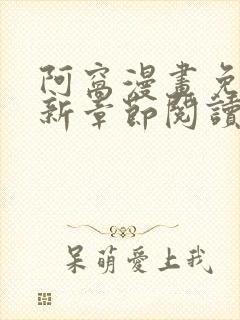 阿窩漫畫免
新章節閱讀
呆萌愛上我